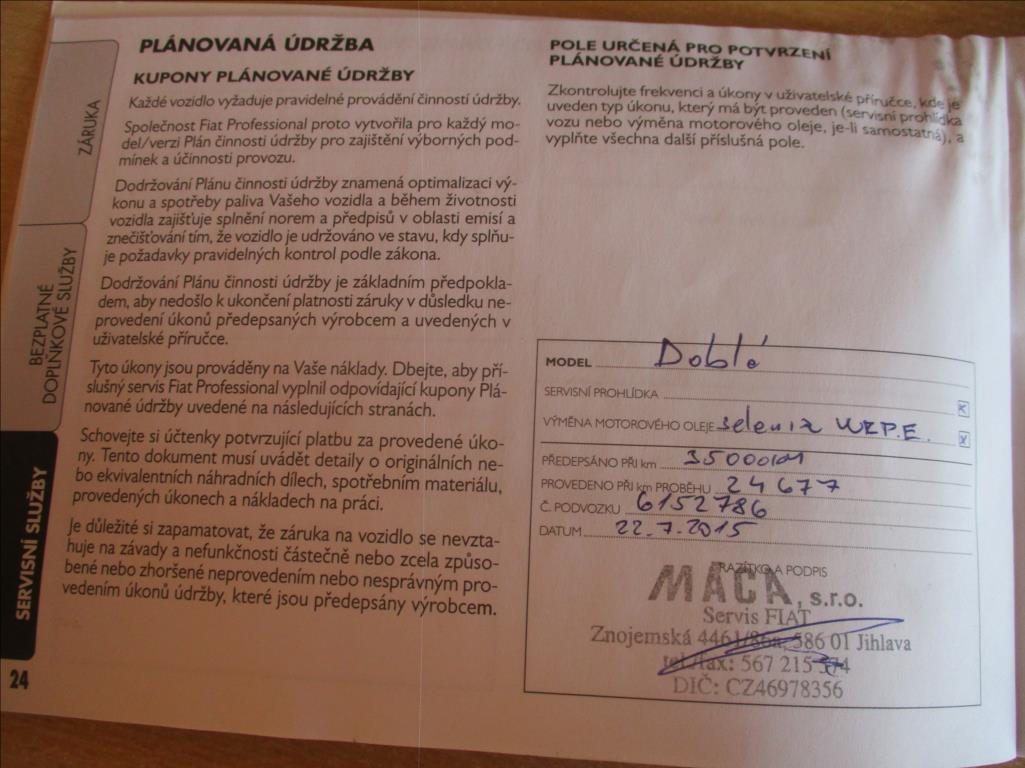 PLÁNOVANÁ ÚDRŽBA
KUPONY PLÁNOVANÉ ÚDRŽBY
Každé vozidlo vyžaduje pravidelné provádění činností údržby.
Společnost Fiat Professional proto vytvořila pro každý mo-
del/verzi Plán činnosti údržby pro zajištění výborných pod-
mínek a účinnosti provozu.
Dodržování Plánu činnosti údržby znamená optimalizaci vý-
konu a spotřeby paliva Vašeho vozidla a během životnosti
vozidla zajišťuje splnění norem a předpisů v oblasti emisí a
znečišťování tím, že vozidlo je udržováno ve stavu, kdy splňu-
je požadavky pravidelných kontrol podle zákona.
Dodržování Plánu činnosti údržby je základním předpokla-
dem, aby nedošlo k ukončení platnosti záruky v důsledku ne-
provedení úkonů předepsaných výrobcem a uvedených v
uživatelské příručce.
Tyto úkony jsou prováděny na Vaše náklady. Dbejte, aby pří-
slušný servis Fiat Professional vyplnil odpovídající kupony Plá-
nované údržby uvedené na následujících stranách.
Schovejte si účtenky potvrzující platbu za provedené úko-
ny. Tento dokument musí uvádět detaily o originálních ne-
bo ekvivalentních náhradních dílech, spotřebním materiálu,
provedených úkonech a nákladech na práci.
Je důležité si zapamatovat, že záruka na vozidlo se nevzta-
huje na závady a nefunkčnosti částečně nebo zcela způso-
bené nebo zhoršené neprovedením nebo nesprávným pro-
vedením úkonů údržby, které jsou předepsány výrobcem.
ZÁRUKA
BEZPLATNÉ
DOPLŇKOVÉ SLUŽBY
SERVISNÍ SLUŽBY
24
POLE URČENÁ PRO POTVRZENÍ
PLÁNOVANÉ ÚDRŽBY
Zkontrolujte frekvenci a úkony v uživatelské příručce, kde je
uveden typ úkonu, který má být proveden (servisní prohlídka
vozu nebo výměna motorového oleje, je-li samostatná), a
vyplňte všechna další příslušná pole.
MODEL Dobló
SERVISNÍ PROHLÍDKA
VÝMĚNA MOTOROVÉHO OLEJE selenia W.R.P.E.
PŘEDEPSÁNO PŘI km 35000
PROVEDENO PŘI km PROBĚHU 24677
Č. PODVOZKU 6152786
DATUM 22.7.2015
RAZÍTKO A PODPIS
MACA, s.r.o.
Servis FIAT
Znojemská 4461/86a, 586 01 Jihlava
tel./fax: 567 215 374
DIČ: CZ46978356